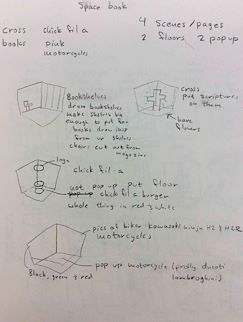 Space book
cross chick fil a
books pink
motorcycles
4 scenes/pages
2 floors 2 pop up
Bookshelves
draw bookshelves
make shelves big
enough to put fun
books draw insp
from ur shelves
chairs cut out from
magazine
cross
put scriptures
on them
have
flowers
logo
chick fil-a
not pop up put floor
pop up chick fil a burger
whole thing in red & white
pics of biker kawasaki ninja H2 & H2R
motorcycles
pop up motorcycle (prolly ducati
lamborghini)
Black, green & red